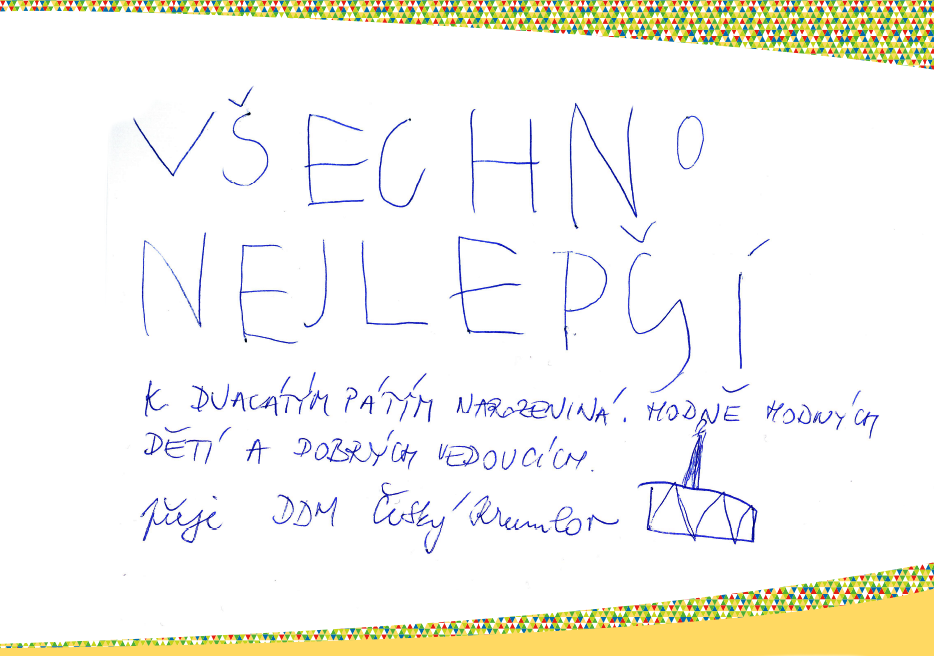 VŠECHNO
NEJLEPŠÍ
K DVACÁTÝM PÁTÝM NAROZENINÁ. HODNĚ HODNÝCH
DĚTÍ A DOBRÝCH VEDOUCÍCH.
přeje DDM Český Krumlov